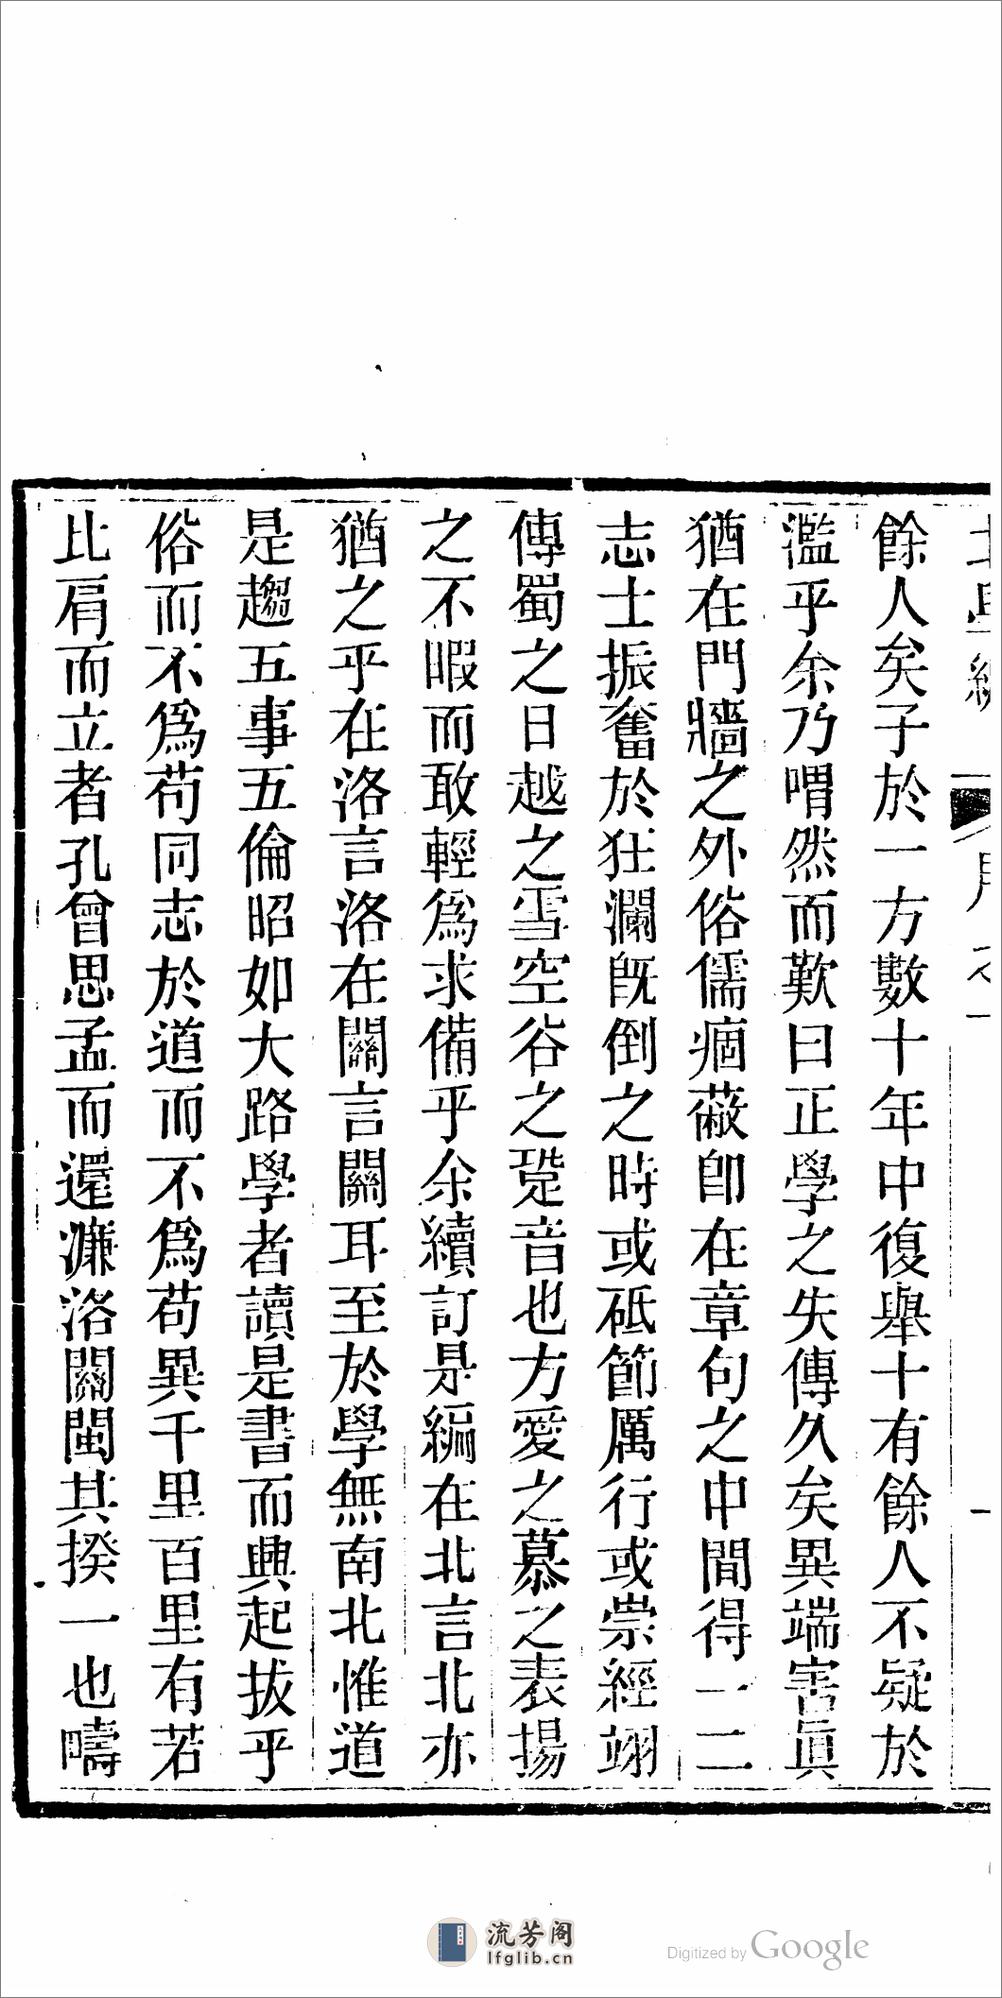 餘人矣子於一方數十年中復舉十有餘人不疑於
濫乎余乃喟然而歎曰正學之失傳久矣異端害眞
猶在門牆之外俗儒痼蔽卽在章句之中間得一二
志士振奮於狂瀾旣倒之時或砥節厲行或崇經翊
傳蜀之日越之雪空谷之跫音也方愛之慕之表揚
之不暇而敢輕爲求備乎余續訂是編在北言北亦
猶之乎在洛言洛在關言關耳至於學無南北惟道
是趨五事五倫昭如大路學者讀是書而興起拔乎
俗而不爲苟同志於道而不爲苟異千里百里有若
比肩而立者孔曾思孟而還濂洛關閩其揆一也疇
流芳阁
lfglib.cn
Digitized by Google